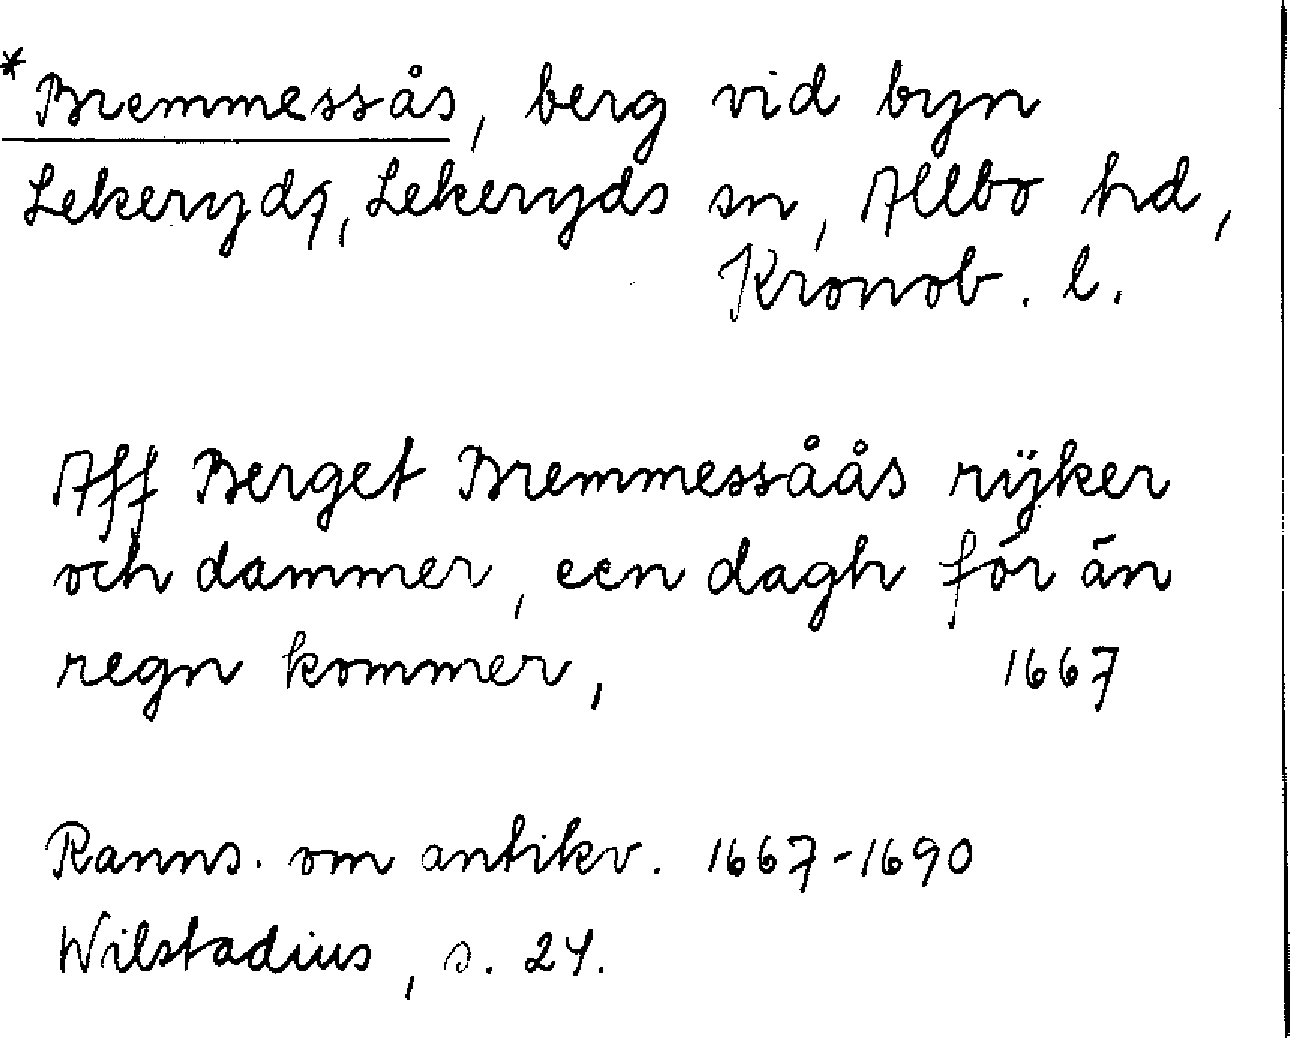 *Bremmessås, berg vid byn
Lekeryd, Lekeryds sn, Allbo hd,
Kronob. l.
Aff Berget Bremmessåås rÿker
och dammer, een dagh fór än
regn kommer, 1667
Ranns. om antikv. 1667-1690
Wilstadius, s. 24.